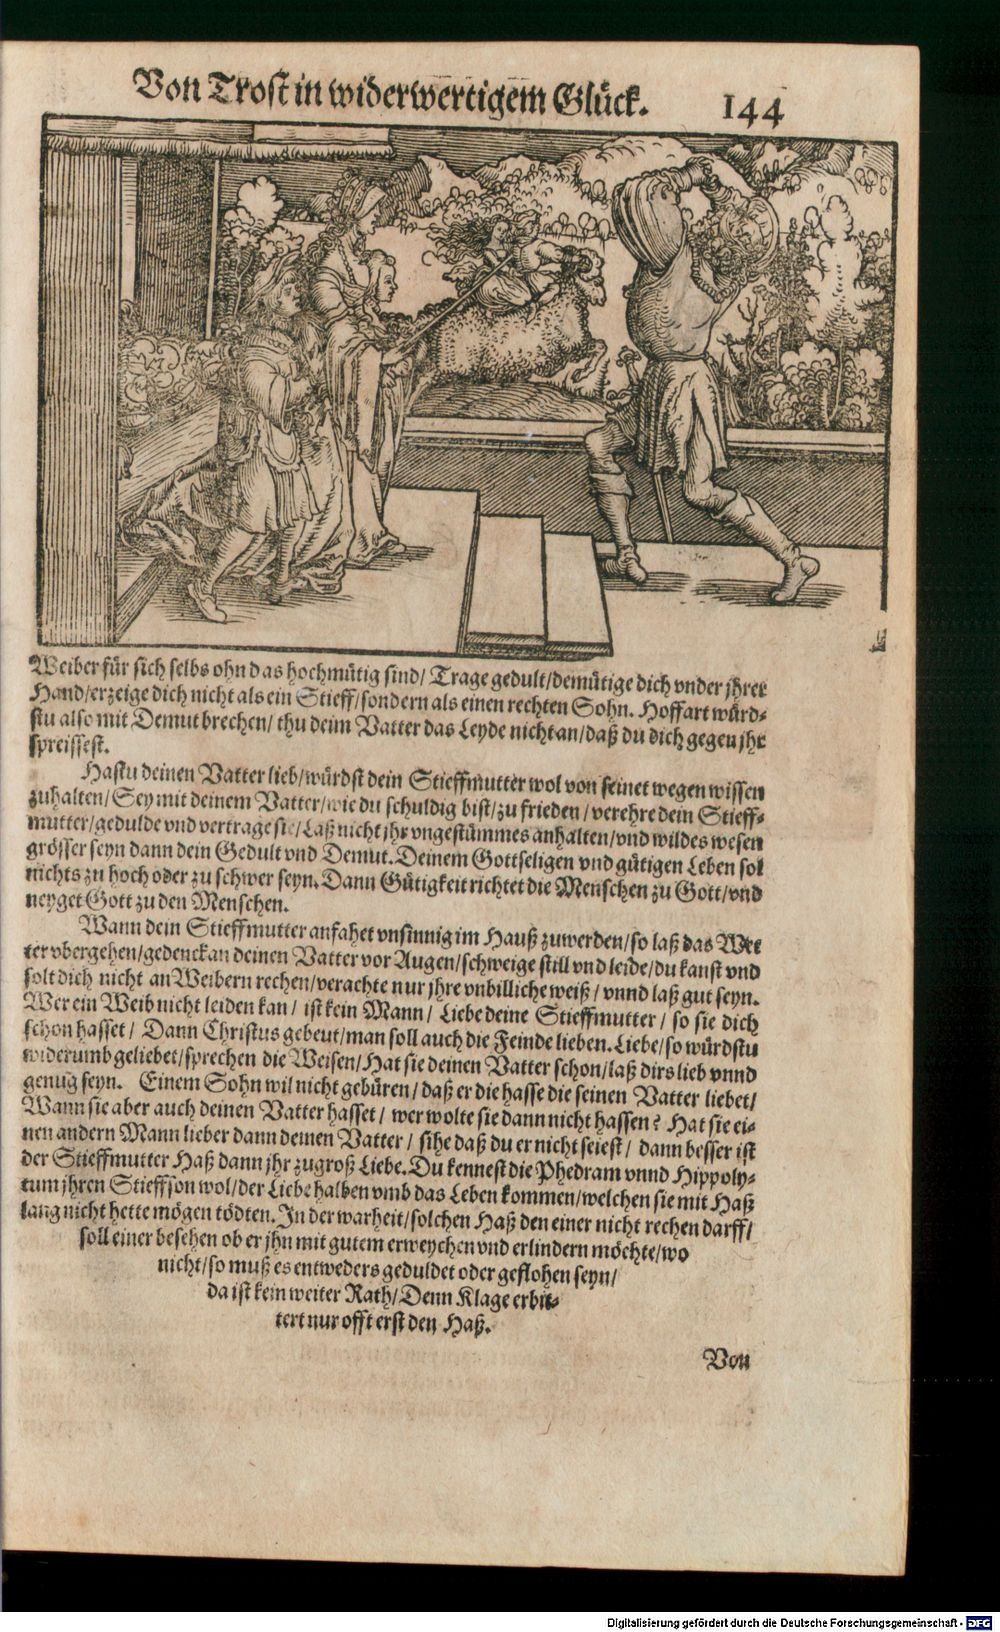 Von Trost in widerwertigem Glück. 144
Weiber für sich selbs ohn das hochmütig sind/ Trage gedult/demütige dich vnder jhrer
Hand/erzeige dich nicht als ein Stieff/sondern als einen rechten Sohn. Hoffart würd-
stu also mit Demut brechen/ thu deim Vatter das Leyde nicht an/daß du dich gegen jhr
spreissest.
Hastu deinen Vatter lieb/würdst dein Stieffmutter wol von seinet wegen wissen
zuhalten/Sey mit deinem Vatter/wie du schuldig bist/zu frieden/verehre dein Stieff-
mutter/gedulde vnd vertrage sie/Laß nicht jhr vngestümmes anhalten/vnd wildes wesen
grösser seyn dann dein Gedult vnd Demut. Deinem Gottseligen vnd gütigen Leben sol
nichts zu hoch oder zu schwer seyn. Dann Gütigkeit richtet die Menschen zu Gott/vnd
neyget Gott zu den Menschen.
Wann dein Stieffmutter anfahet vnsinnig im Hauß zuwerden/so laß das Wet
ter vbergehen/gedenck an deinen Vatter vor Augen/schweige still vnd leide/du kanst vnd
solt dich nicht an Weibern rechen/verachte nur jhre vnbilliche weiß/ vnnd laß gut seyn.
Wer ein Weib nicht leiden kan/ ist kein Mann/ Liebe deine Stieffmutter/ so sie dich
schon hasset/ Dann Christus gebeut/man soll auch die Feinde lieben. Liebe/so würdstu
widerumb geliebet/sprechen die Weisen/Hat sie deinen Vatter schon/laß dirs lieb vnnd
genug seyn. Einem Sohn wil nicht gebüren/daß er die hasse die seinen Vatter liebet/
Wann sie aber auch deinen Vatter hasset/ wer wolte sie dann nicht hassen? Hat sie ei-
nen andern Mann lieber dann deinen Vatter/ sihe daß du er nicht seiest/ dann besser ist
der Stieffmutter Haß dann jhr zugroß Liebe. Du kennest die Phedram vnnd Hippoly-
tum jhren Stieffson wol/der Liebe halben vmb das Leben kommen/welchen sie mit Haß
lang nicht hette mögen tödten. In der warheit/solchen Haß den einer nicht rechen darff/
soll einer besehen ob er jhn mit gutem erweychen vnd erlindern möchte/wo
nicht/so muß es entweders geduldet oder geflohen seyn/
da ist kein weiter Rath/Denn Klage erbit-
tert nur offt erst den Haß.
Von
Digitalisierung gefördert durch die Deutsche Forschungsgemeinschaft - DFG